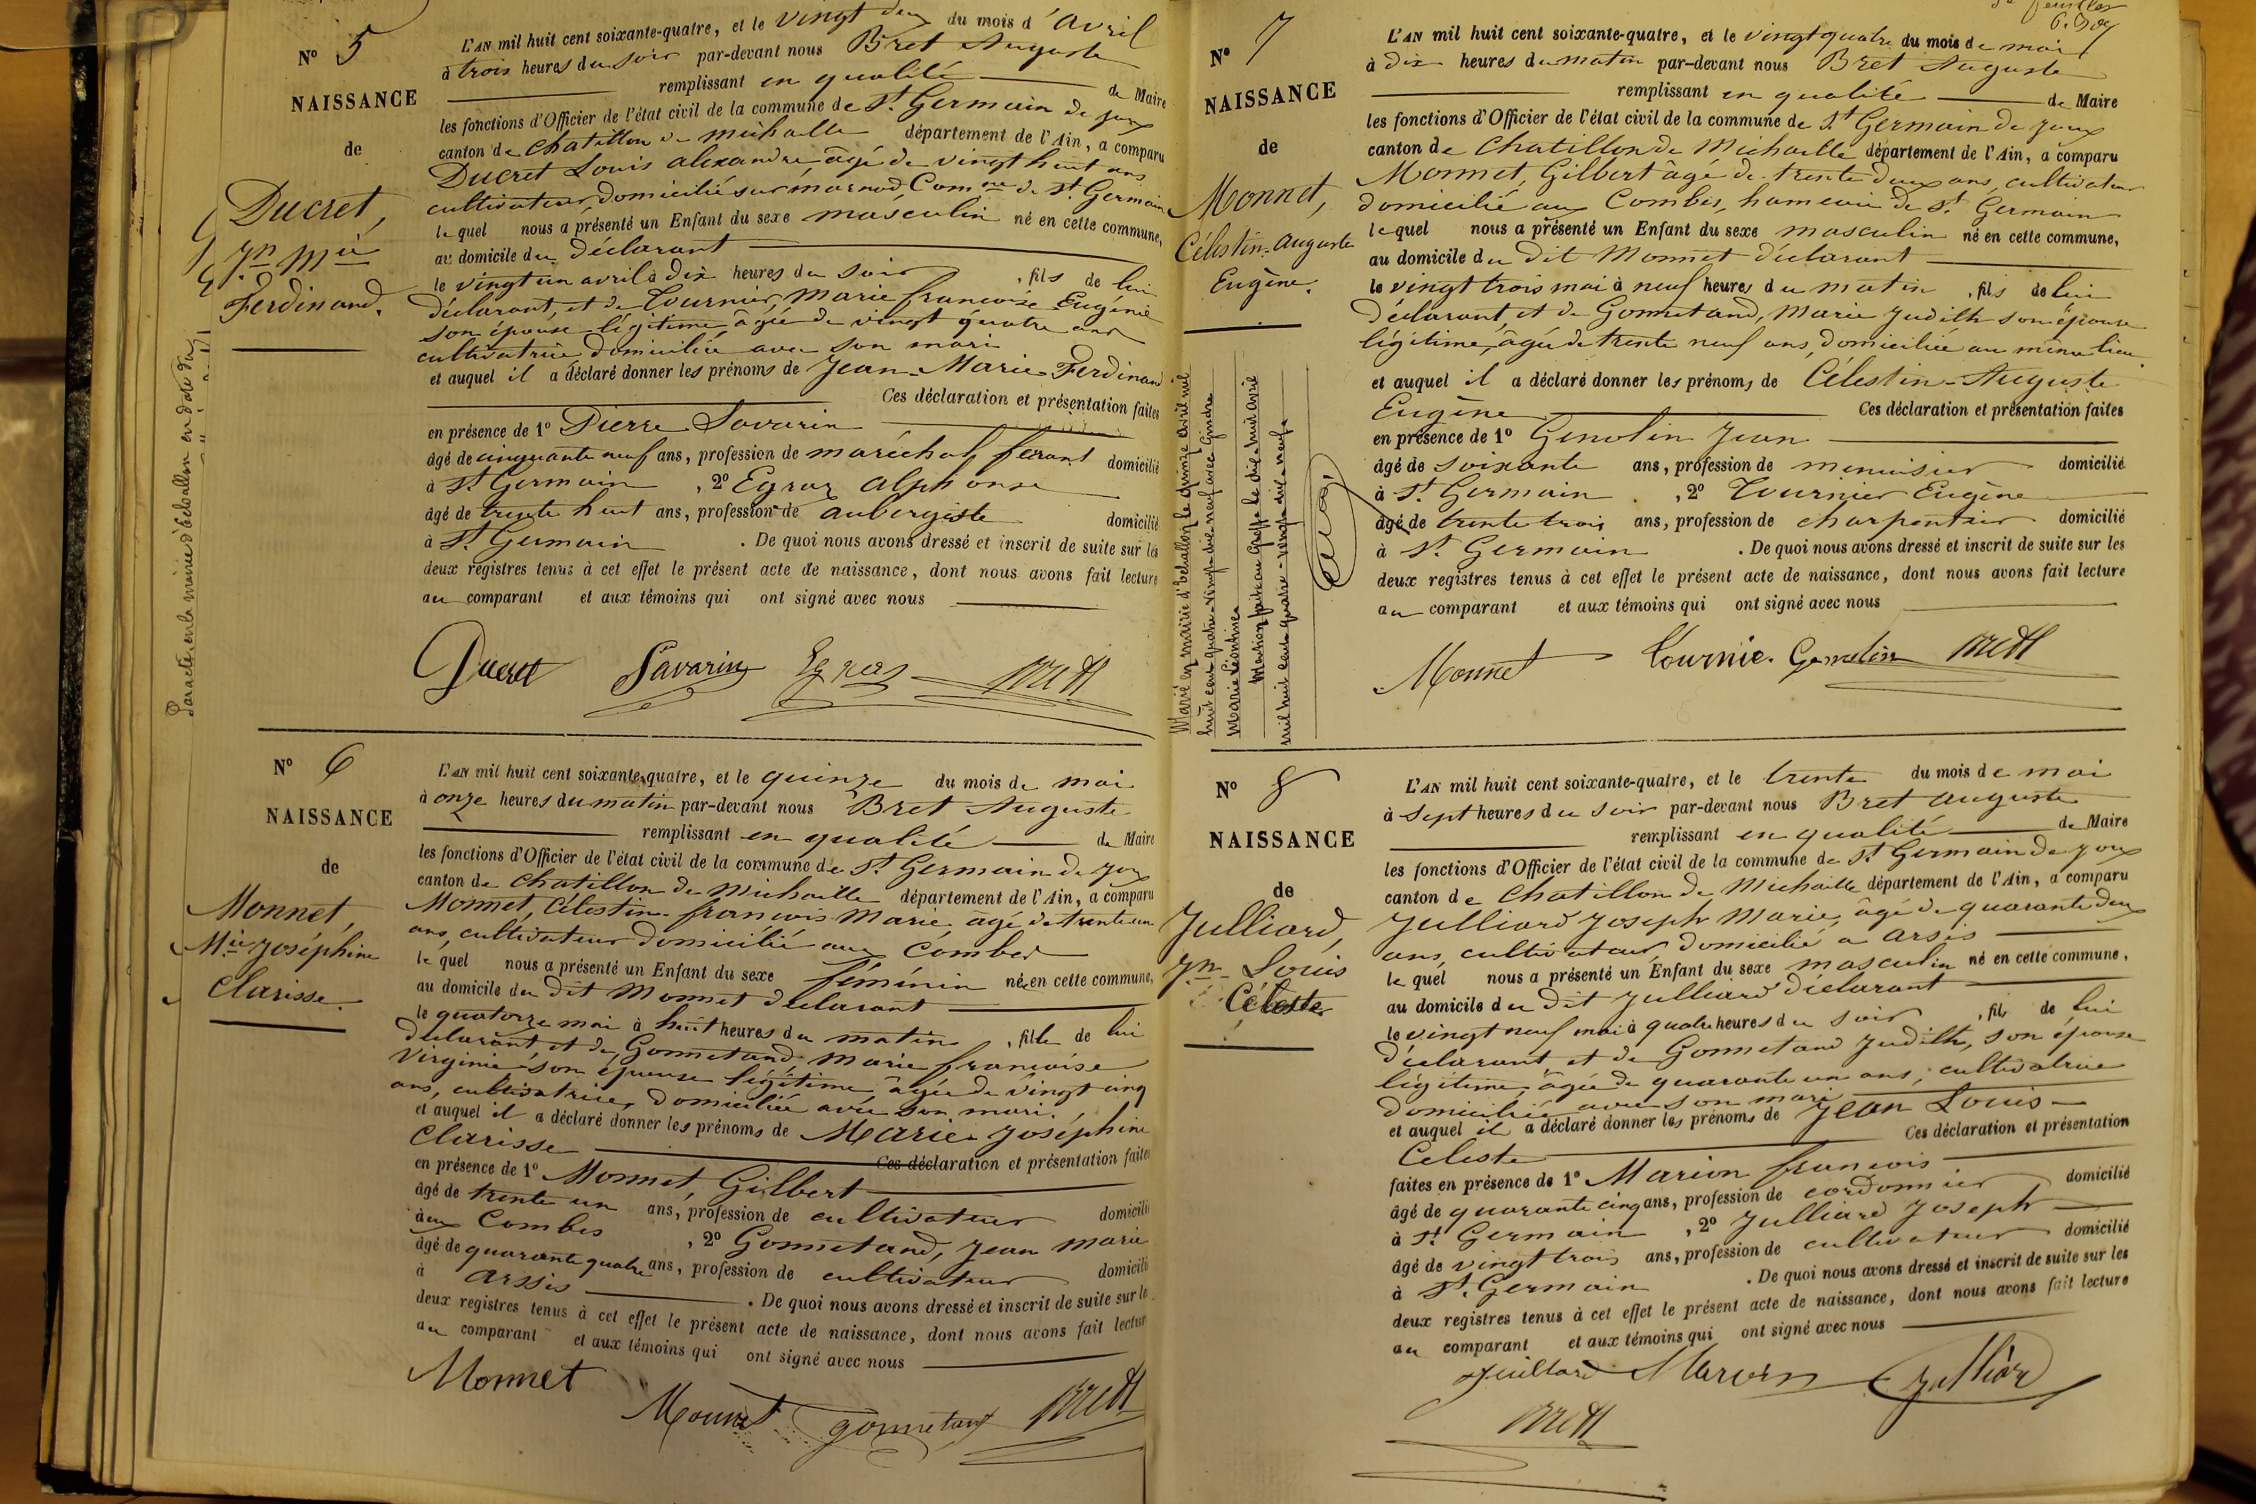 N° 5
NAISSANCE
de
Ducret,
Jn Mie
Ferdinand.
L'AN mil huit cent soixante-quatre, et le vingt deux du mois d'avril
à trois heures du soir par-devant nous Bret Auguste
remplissant en qualité de Maire
les fonctions d'Officier de l'état civil de la commune de St Germain de joux
canton de Chatillon de michaille département de l'Ain, a comparu
Ducret Louis alexandre âgé de vingt huit ans
cultivateur, domicilié sur marnod, Comne de St Germain
le quel nous a présenté un Enfant du sexe masculin né en cette commune,
au domicile du déclarant
le vingt un avril à dix heures du soir, fils de lui
déclarant, et de Tournier, Marie françoise Eugénie
son épouse légitime, âgée de vingt quatre ans
cultivatrice, domiciliée avec son mari
et auquel il a déclaré donner les prénoms de Jean-Marie-Ferdinand
Ces déclaration et présentation faites
en présence de 1° Pierre Savarin
âgé de cinquante neuf ans, profession de maréchal ferrant domicilié
à St Germain, 2° Egraz alphonse
âgé de trente huit ans, profession de aubergiste domicilié
à St Germain. De quoi nous avons dressé et inscrit de suite sur les
deux registres tenus à cet effet le présent acte de naissance, dont nous avons fait lecture
au comparant et aux témoins qui ont signé avec nous
Ducret Savarin Egraz Bret
Par acte, en la mairie d'Echallon en date du
N° 6
NAISSANCE
de
Monnet,
Mie Joséphine
Clarisse.
L'AN mil huit cent soixante-quatre, et le quinze du mois de mai
à onze heures du matin par-devant nous Bret Auguste
remplissant en qualité de Maire
les fonctions d'Officier de l'état civil de la commune de St Germain de joux
canton de Chatillon de Michaille département de l'Ain, a comparu
Monnet, Célestin françois Marie, âgé de trente un
ans, cultivateur domicilié aux Combes
le quel nous a présenté un Enfant du sexe féminin née en cette commune,
au domicile du dit Monnet déclarant
le quatorze mai à huit heures du matin, fille de lui
déclarant, et de Gonnetand, Marie françoise
Virginie son épouse légitime, âgée de vingt cinq
ans, cultivatrice, domiciliée avec son mari,
et auquel il a déclaré donner les prénoms de Marie-Joséphine
Clarisse Ces déclaration et présentation faites
en présence de 1° Monnet, Gilbert
âgé de trente un ans, profession de cultivateur domicilié
aux Combes, 2° Gonnetand, Jean marie
âgé de quarante quatre ans, profession de cultivateur domicilié
à arssis. De quoi nous avons dressé et inscrit de suite sur les
deux registres tenus à cet effet le présent acte de naissance, dont nous avons fait lecture
au comparant et aux témoins qui ont signé avec nous
Monnet
Monnet gonnetand Bret
N° 7
NAISSANCE
de
Monnet,
Célestin-Auguste
Eugène.
L'AN mil huit cent soixante-quatre, et le vingt quatre du mois de mai
à dix heures du matin par-devant nous Bret Auguste
remplissant en qualité de Maire
les fonctions d'Officier de l'état civil de la commune de St Germain de joux
canton de Chatillon de Michaille département de l'Ain, a comparu
Monnet, Gilbert âgé de trente deux ans, cultivateur
domicilié aux Combes, hameau de St Germain
le quel nous a présenté un Enfant du sexe masculin né en cette commune,
au domicile du dit Monnet déclarant
le vingt trois mai à neuf heures du matin, fils de lui
déclarant, et de Gonnetand, Marie Judith son épouse
légitime, âgée de trente neuf ans, domiciliée au même lieu
et auquel il a déclaré donner les prénoms de Célestin-Auguste
Eugène Ces déclaration et présentation faites
en présence de 1° Genolin Jean
âgé de soixante ans, profession de menuisier domicilié
à St Germain, 2° Tournier Eugène
âgé de trente trois ans, profession de charpentier domicilié
à St Germain. De quoi nous avons dressé et inscrit de suite sur les
deux registres tenus à cet effet le présent acte de naissance, dont nous avons fait lecture
au comparant et aux témoins qui ont signé avec nous
Monnet Tournier Genolin Bret
Marié en mairie d'Echallon le quinze avril mil
huit cent quatre-vingt-dix neuf avec Gindre
Marie Léontine
Mention faite au Greffe le dix-huit avril
mil huit cent quatre-vingt-dix-neuf
N° 8
NAISSANCE
de
Julliard,
Jn Louis
Céleste
L'AN mil huit cent soixante-quatre, et le trente du mois de mai
à sept heures du soir par-devant nous Bret auguste
remplissant en qualité de Maire
les fonctions d'Officier de l'état civil de la commune de St Germain de joux
canton de Chatillon de Michaille département de l'Ain, a comparu
Julliard Joseph Marie, âgé de quarante deux
ans, cultivateur, domicilié a arsis
le quel nous a présenté un Enfant du sexe masculin né en cette commune,
au domicile du dit Julliard déclarant
le vingt neuf mai à quatre heures du soir, fils de lui
déclarant, et de Gonnetand Judith, son épouse
légitime, âgée de quarante un ans, cultivatrice
domiciliée avec son mari
et auquel il a déclaré donner les prénoms de Jean Louis
Celeste Ces déclaration et présentation
faites en présence de 1° Marion françois
âgé de quarante cinq ans, profession de cordonnier domicilié
à St Germain, 2° Julliard Joseph
âgé de vingt trois ans, profession de cultivateur domicilié
à St Germain. De quoi nous avons dressé et inscrit de suite sur les
deux registres tenus à cet effet le présent acte de naissance, dont nous avons fait lecture
au comparant et aux témoins qui ont signé avec nous
Juillard Marion Julliard
Bret